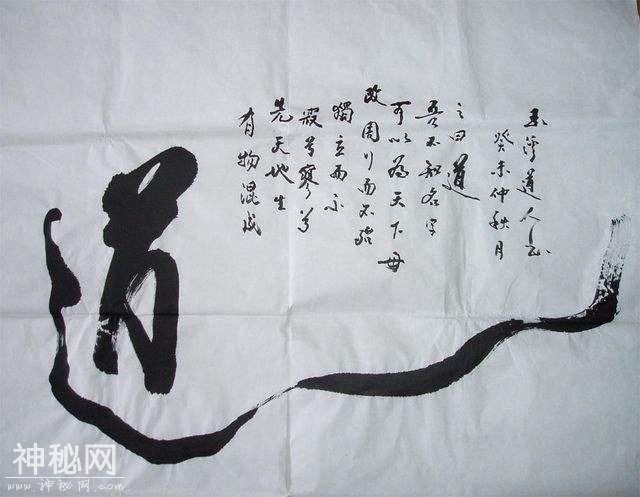 道
有物混成
先天地生
寂兮寥兮
獨立而不
改周行而不殆
可以為天下母
吾不知名字
之曰道
癸未仲秋月
道人
神秘网
www.神秘网.com